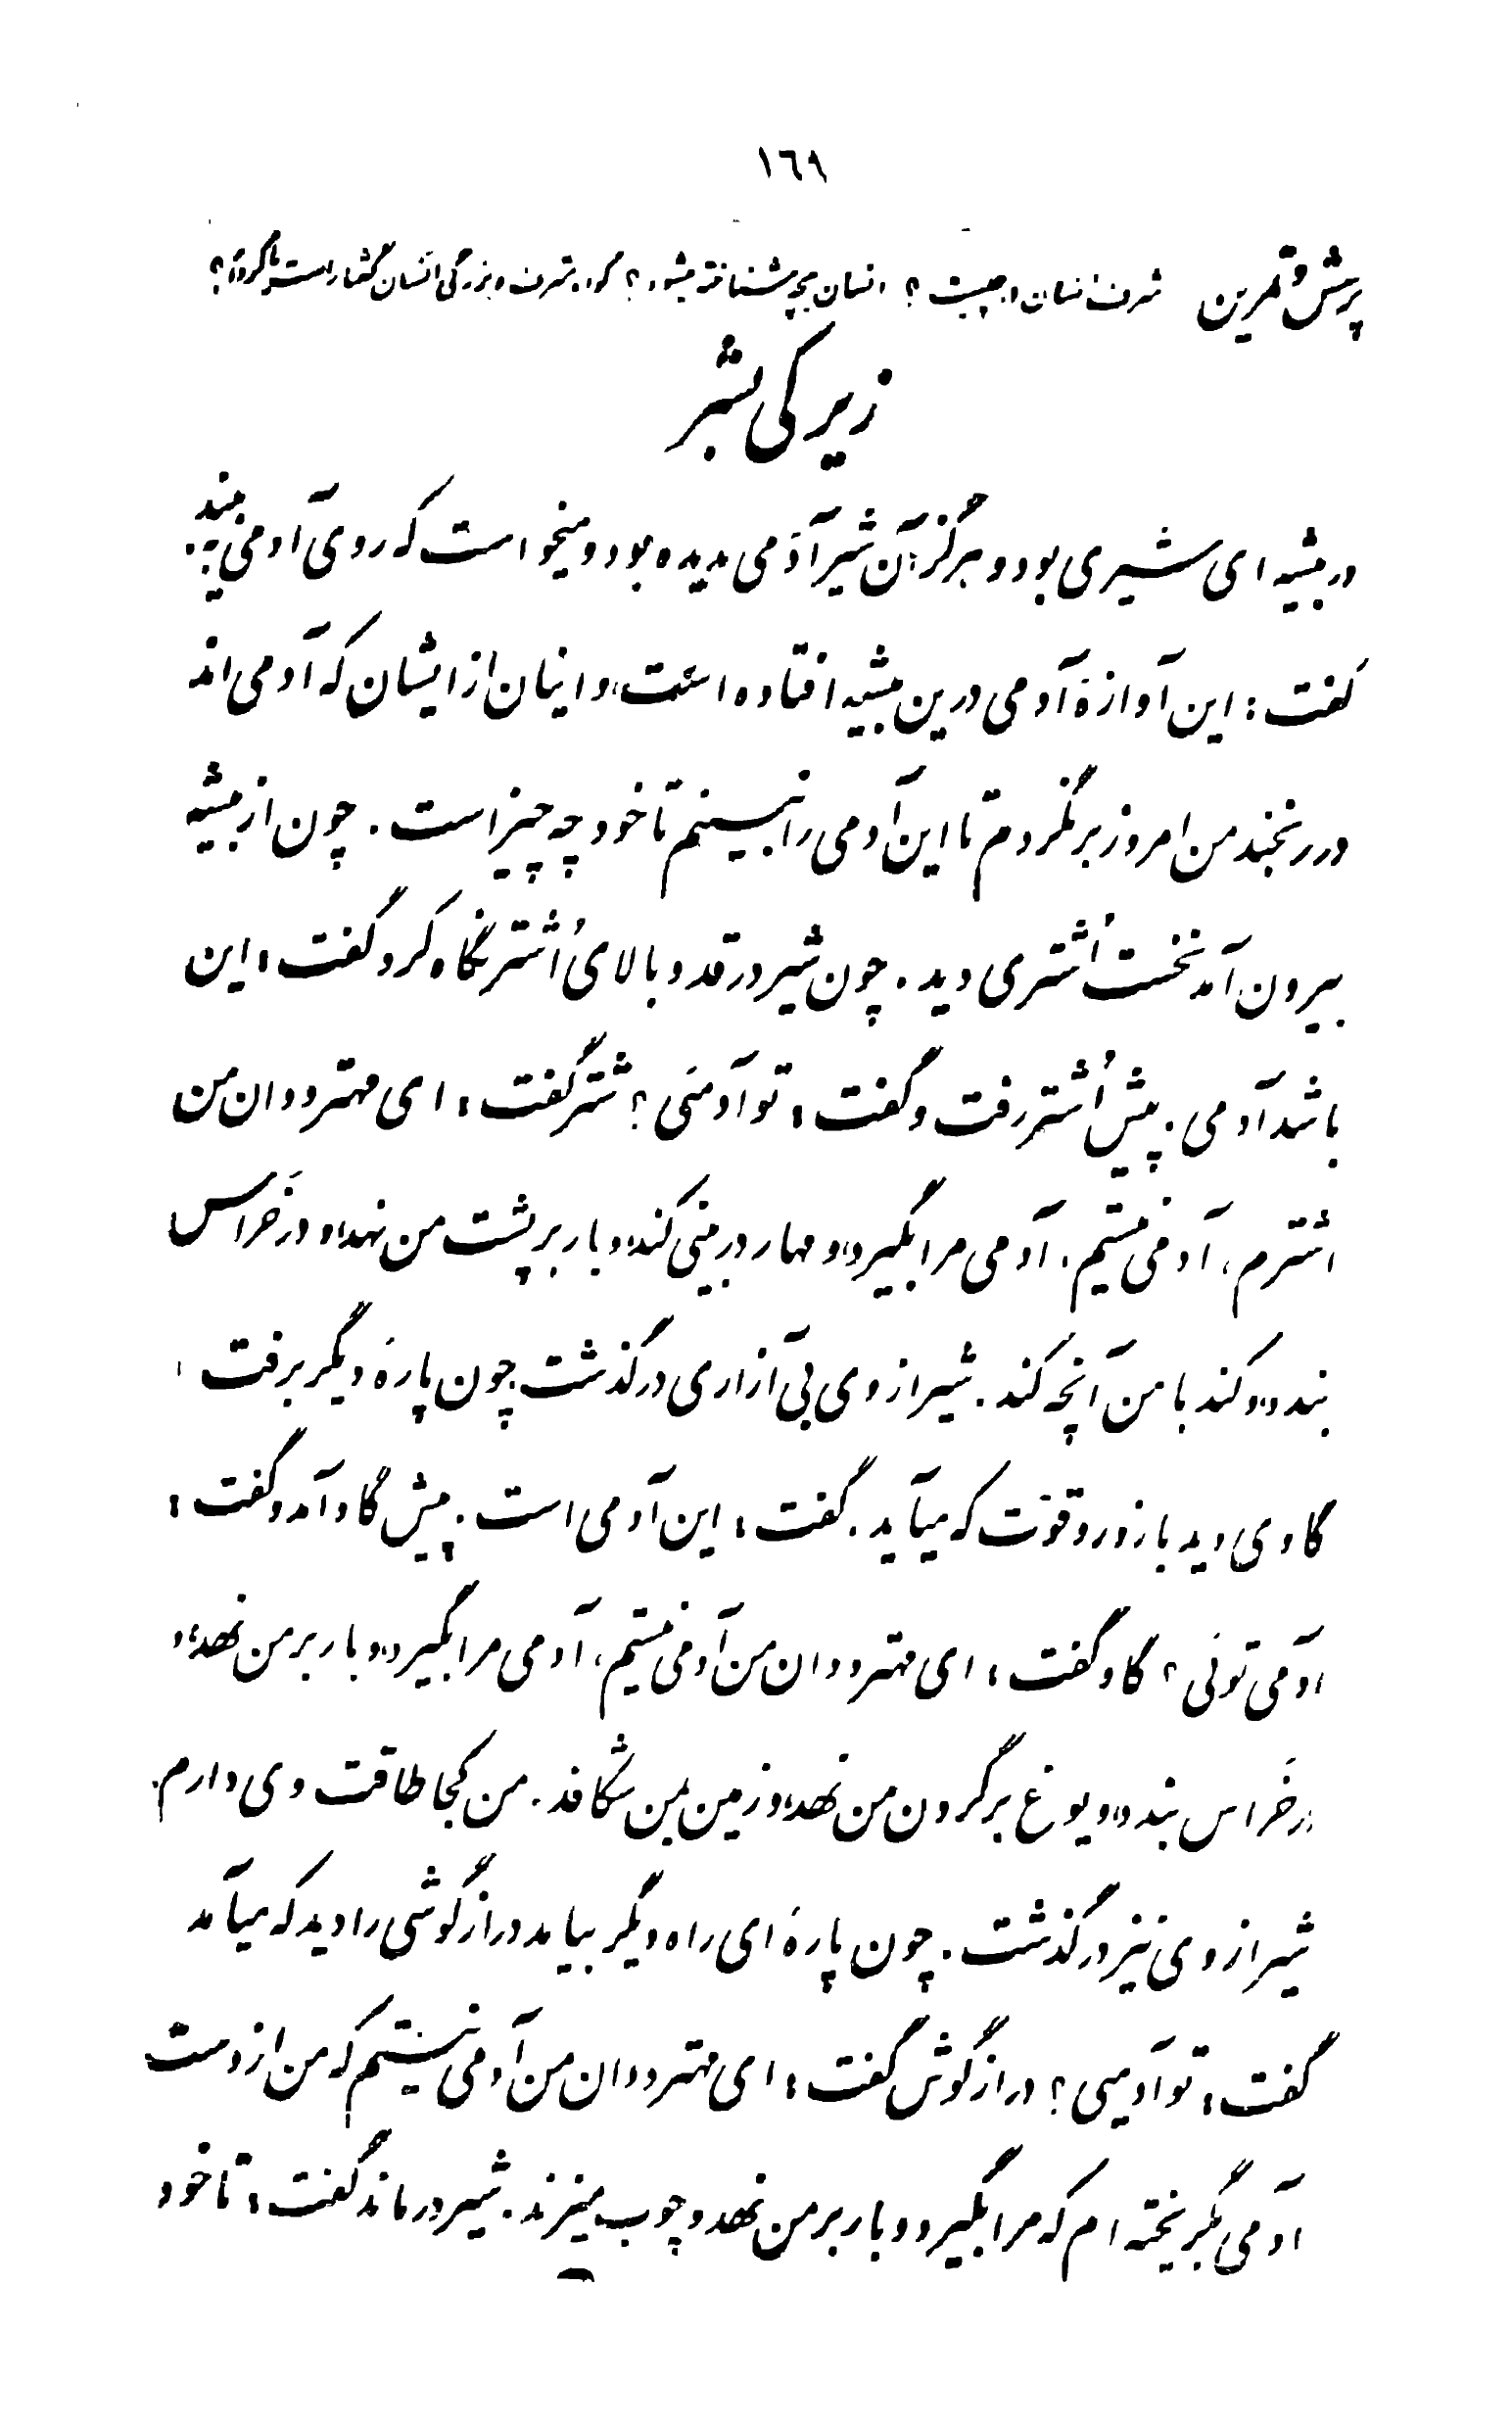 ١٦٩
پرسش و تمرین شرف انسان در چیست؟ انسان بچه شناخته میشود؟ گواه شرف و بزرگی انسان گفتار است یا کردار؟
زیرکی بشر
در بیشه ای شیری بود و هرگز آن شیر آدمی ندیده بود و میخواست که روی آدمی ببیند.
گفت: این آوازهٔ آدمی درین بیشه افتاده است، و اینان از ایشان که آدمی اند
در رنجند من امروز برنگردم تا این آدمی را نبینم تا خود چه چیز است. چون از بیشه
بیرون آمد نخست اُشتری دید. چون شیر در قد و بالای اُشتر نگاه کرد گفت: این
باشد آدمی. پیش اُشتر رفت و گفت: تو آدمئی؟ شتر گفت: ای مهتر ددان من
اشترم، آدمی نیستم. آدمی مرا بگیرد، و مهار در بینی کند، و بار بر پشت من نهد، و در خَراس
بندد، و کند با من آنچه کند. شیر از وی بی آزاری درگذشت چون پارهٔ دیگر برفت،
گاوی دید با زور و قوّت که میآید. گفت: این آدمی است. پیش گاو آمد و گفت:
آدمی توئی؟ گاو گفت: ای مهتر ددان من آدمی نیستم، آدمی مرا بگیرد، و بار بر من نهد، و
در خَراس بندد، و یوغ بر گردن من نهد، و زمین بمن شکافد. من کجا طاقت وی دارم.
شیر از وی نیز درگذشت. چون پارهٔ ای راه دیگر بیامد درازگوشی را دید که میآمد
گفت: تو آدمیی؟ درازگوش گفت: ای مهتر ددان من آدمی نیستم که من از دست
آدمی بگریخته ام که مرا بگیرد و بار بر من نهد و چوب میزند. شیر درماند گفت: تا خود